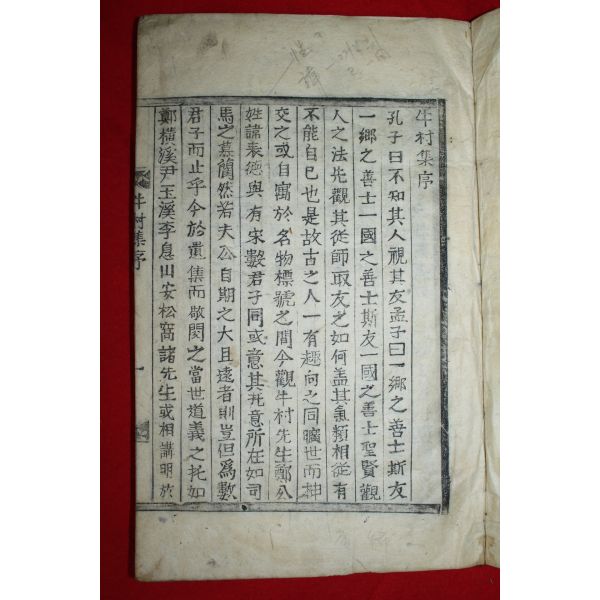 牛村集序
孔子曰不知其人視其友孟子曰一鄉之善士斯友
一鄉之善士一國之善士斯友一國之善士聖賢觀
人之法先觀其從師取友之如何盖其氣類相從有
不能自已也是故古之人一有趣向之同曠世而神
交之或自寓於名物標號之間今觀牛村先生鄭公
姓諱表德與有宋數君子同或意其意所在如司
馬之慕藺然若夫公自期之大且遠者則豈但爲數
君子而止乎今於遺集而敬閱之當世道義之托如
鄭橫溪尹玉溪李息山安松窩諸先生或相講明於
牛村集序 一